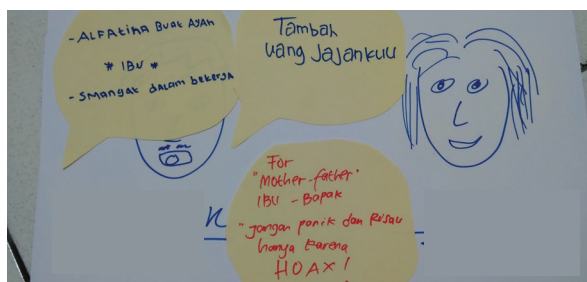 - ALFAtiHA BUAt AyAH
* IBU *
- SMANgAt dALAM bEkERjA
TAMbAH
UANg JAJANkUU
For
"Mother-father"
IBU - BApAk
"jangan panik dan Risau
hanya karena
HOAX!